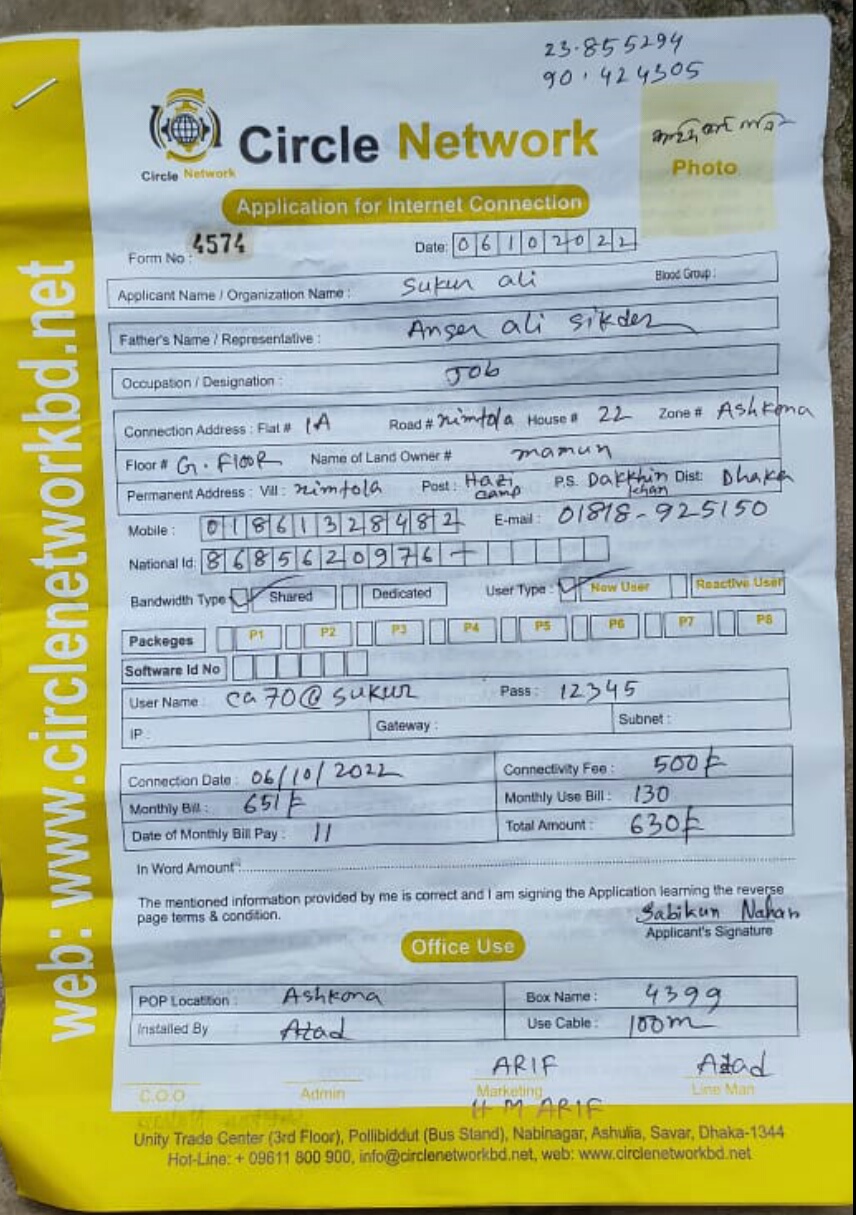 23.855294
90.424305
Circle Network
Circle Network
Photo
Application for Internet Connection
Form No : 4574
Date: 06102022
Applicant Name / Organization Name : Sukur ali Blood Group :
Father's Name / Representative : Anser ali Sikder
Occupation / Designation : Job
Connection Address : Flat # 1A Road # nimtola House # 22 Zone # Ashkona
Floor # G. Floor Name of Land Owner # mamun
Permanent Address : Vill : nimtola Post : Hazi camp P.S. Dakkhin khan Dist: Dhaka
Mobile : 01861328482 E-mail : 01818-925150
National Id: 8685620976
Bandwidth Type Shared Dedicated User Type : New User Reactive User
Packeges P1 P2 P3 P4 P5 P6 P7 P8
Software Id No
User Name : ca70@sukur Pass : 12345
IP : Gateway : Subnet :
Connection Date : 06/10/2022 Connectivity Fee : 500/-
Monthly Bill : 651/- Monthly Use Bill : 130
Date of Monthly Bill Pay : 11 Total Amount : 630/-
In Word Amount
The mentioned information provided by me is correct and I am signing the Application learning the reverse
page terms & condition.
Sabikun Nahar
Applicant's Signature
Office Use
POP Locatition : Ashkona Box Name : 4399
Installed By Azad Use Cable : 100m
ARIF Azad
C.O.O Admin Marketing Line Man
H M ARIF
Unity Trade Center (3rd Floor), Pollibiddut (Bus Stand), Nabinagar, Ashulia, Savar, Dhaka-1344
Hot-Line: + 09611 800 900, info@circlenetworkbd.net, web: www.circlenetworkbd.net
web: www.circlenetworkbd.net